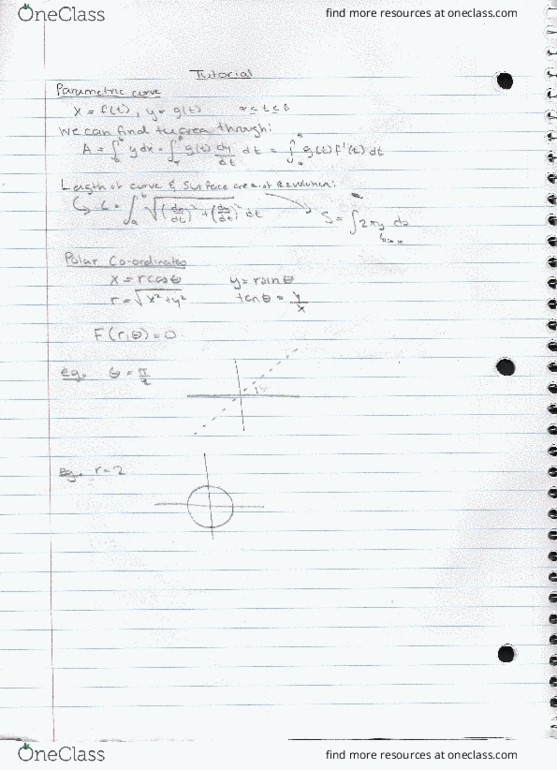 OneClass find more resources at oneclass.com
Tutorial
Parametric curve
x = f(t), y = g(t) α ≤ t ≤ β
We can find the area through:
A = ∫ y dx = ∫ g(t) dt = ∫ g(t) f'(t) dt
Length of curve & Surface area of Revolution:
↳ L = ∫ √((dx/dt)² + (dy/dt)²) dt S = ∫ 2πy ds
Polar Co-ordinates
x = rcosθ y = rsinθ
r = √x² + y² tanθ = y/x
F(r, θ) = 0
eg. θ =
eg. r = 2
OneClass find more resources at oneclass.com